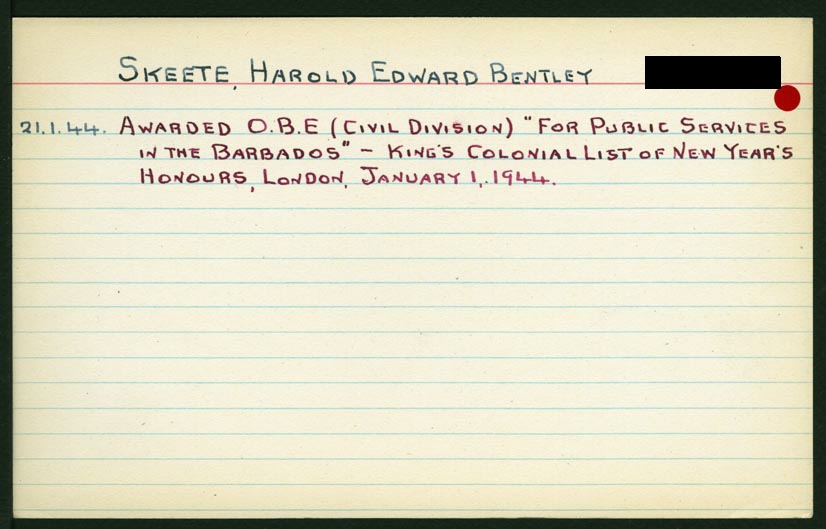 SKEETE, HAROLD EDWARD BENTLEY
21.1.44. AWARDED O.B.E (CIVIL DIVISION) "FOR PUBLIC SERVICES
IN THE BARBADOS" - KING'S COLONIAL LIST OF NEW YEAR'S
HONOURS, LONDON, JANUARY 1, 1944.